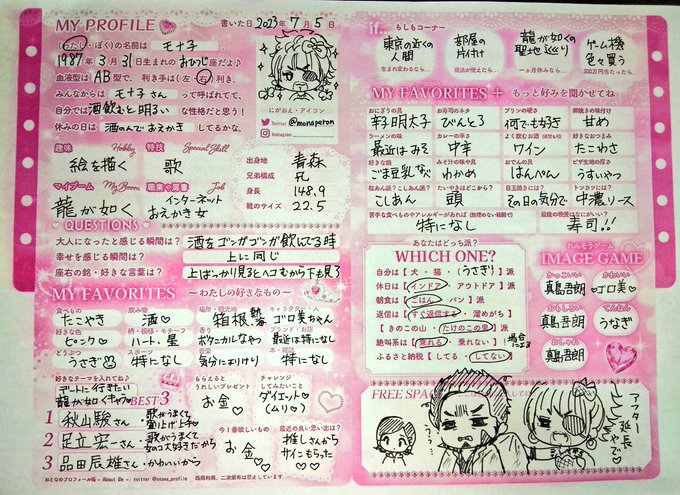 MY PROFILE
書いた日 2023年 7月 5日
(わたし・ぼく)の名前は モナ子
1987年 3月 31日生まれの おひつじ座だよ♪
血液型は AB 型で、利き手は(左・右)利き。
みんなからは モナ子さん って呼ばれてて、
自分では 酒飲むと明るい な性格だと思う!
休みの日は 酒のんでおえかき してるかな。
にがおえ・アイコン
Twitter @monaperon
Instagram
趣味 Hobby
絵を描く
特技 Special Skill
歌
マイブーム My Boom
龍が如く
職業や肩書 Job
インターネット
おえかき女
出身地 青森
兄弟構成 兄
身長 148.9
靴のサイズ 22.5
QUESTIONS
大人になったと感じる瞬間は? 酒をゴンガゴンガ飲んでる時
幸せを感じる瞬間は? 上に同じ
座右の銘・好きな言葉は? 上ばっか見るとヘコむから下も見ろ
MY FAVORITES ~わたしの好きなもの~
食べもの たこやき
飲み物 酒♡
場所・観光地 箱根、熱海
キャラクター・人 ゴロ美ちゃん
好きな色 ピンク♡
柄・模様・モチーフ ハート、星
香り ボタニカルなやつ
ブランド・お店 最近は特になし
どうぶつ うさぎ
スポーツ 特になし
音楽 気分によりけり
本・雑誌 特になし
好きなテーマを入れてね♪
デートに行きたい
龍が如くキャラ♡ BEST3
1 秋山駿さん・歌がうまくて
盛り上げ上手
2 足立宏一さん・歌がうまくて
如コ大好きだから
3 品田辰雄さん・かわいいから
もらえると
うれしいプレゼント
お金♡
チャレンジ
してみたいこと
ダイエット♡
(ムリ♡)
今1番欲しいもの
お金♡
最近の良い思い出は?
推しさんから
サインもらった♡
おとなのプロフィール帳 - About Me - twitter @otona_profile 商用利用、二次頒布は禁止しています
if... もしもコーナー
東京の近くの
人間
生まれ変わるなら…
部屋の
片付け
魔法が使えたら…
龍が如くの
聖地巡り
一ヶ月休みなら…
ゲーム機
色々買う
300万円当たったら…
MY FAVORITES + もっと好みを聞かせてね
おにぎりの具 辛子明太子
お寿司のネタ びんとろ
プリンの硬さ 何でも好き
卵焼きの味付け 甘め
ラーメンの味 最近はみそ
カレーの辛さ 中辛
よく飲むお酒 ワイン
好きなおつまみ たこわさ
好きな鍋 ごま豆乳なべ
みそ汁の具 わかめ
おでんの具 はんぺん
ピザ生地の厚さ うすいやつ
粒あん派?こしあん派? こしあん
たいやきはどこから? 頭
目玉焼きには? その日の気分で
トンカツには? 中濃ソース
苦手な食べものやアレルギーがあれば(無理のない範囲で) 特になし
最後の晩餐はなにがいい? 寿司!!
あなたはどっち派?
WHICH ONE?
自分は【 犬・猫・(うさぎ) 】派
休日は【 インドア・アウトドア 】派
朝食は【 ごはん・パン 】派
返信は【 すぐ返信する・溜めがち 】
【 きのこの山・たけのこの里 】派
絶叫系は【 乗れる・乗れない 】! 場合による
ふるさと納税【 してる・してない 】
れんそうゲーム
IMAGE GAME
かっこいい 真島吾朗
かわいい ♡ゴロ美♡
おもしろい 真島吾朗
てんねん うなぎ
おしゃれ 真島吾朗
FREE SPACE
アフター
延長
やで♡